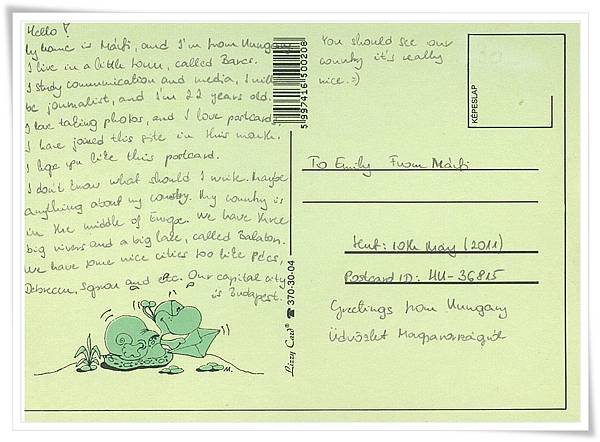 Hello!
My name is Márti, and I'm from Hungary.
I live in a little town, called Barcs.
I study communication and media, I will
be journalist, and I'm 22 years old.
I love taking photos, and I love postcard.
I have joined this site in this month.
I hope you like this postcard.
I don't know what should I write. Maybe
anything about my country. My country is
in the middle of Europe. We have three
big rivers and a big lake, called Balaton.
We have some nice cities too like Pécs,
Debrecen, Sopron and etc. Our capital city
is Budapest.
M.
5997416500208
☎ 370-30-04
Lizzy Card®
You should see our
country it's really
nice. :)
KÉPESLAP
To Emily From Márti
Sent: 10th May (2011)
Postcard ID: HU-36815
Greetings from Hungary
Üdvözlet Magyarországról